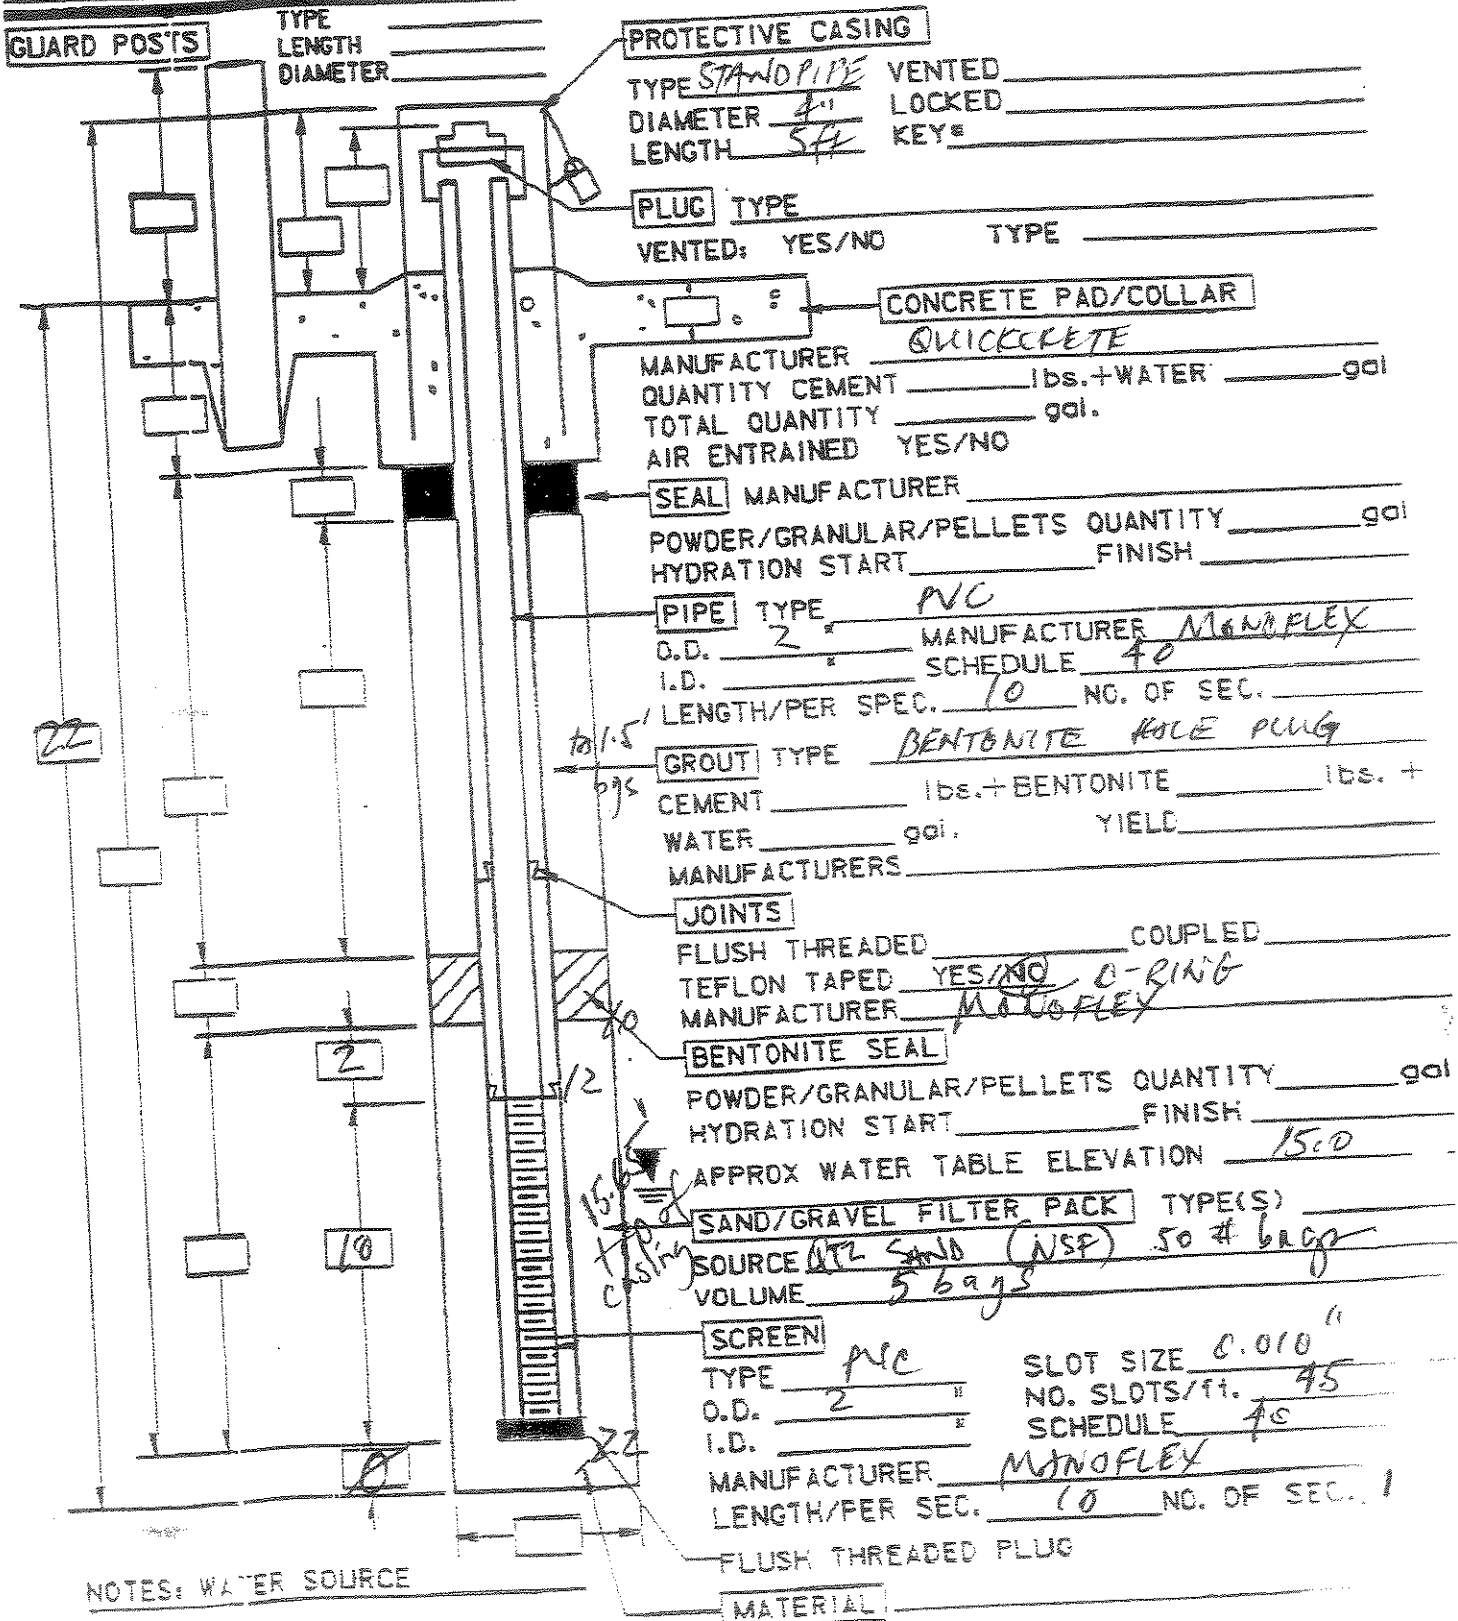 GUARD POSTS
TYPE
LENGTH
DIAMETER
PROTECTIVE CASING
TYPE STANDPIPE VENTED
DIAMETER 4" LOCKED
LENGTH 5ft KEY#
PLUG TYPE
VENTED: YES/NO TYPE
CONCRETE PAD/COLLAR
MANUFACTURER QUICKCRETE
QUANTITY CEMENT lbs.+WATER gal
TOTAL QUANTITY gal.
AIR ENTRAINED YES/NO
SEAL MANUFACTURER
POWDER/GRANULAR/PELLETS QUANTITY gal
HYDRATION START FINISH
PIPE TYPE PVC
O.D. 2 " MANUFACTURER MONOFLEX
I.D. " SCHEDULE 40
LENGTH/PER SPEC. 10 NO. OF SEC.
22
to 1.5'
bgs
GROUT TYPE BENTONITE HOLE PLUG
CEMENT lbs.+BENTONITE lbs. +
WATER gal. YIELD
MANUFACTURERS
JOINTS
FLUSH THREADED COUPLED
TEFLON TAPED YES/NO O-RING
MANUFACTURER MONOFLEX
10
2
BENTONITE SEAL
12
POWDER/GRANULAR/PELLETS QUANTITY gal
HYDRATION START FINISH
APPROX WATER TABLE ELEVATION 15.0
top of
casing
SAND/GRAVEL FILTER PACK TYPE(S)
SOURCE QTZ SAND (NSF) 50 # bags
VOLUME 5 bags
10
SCREEN
TYPE PVC SLOT SIZE 0.010"
O.D. 2 " NO. SLOTS/ft. 45
I.D. " SCHEDULE 40
22
0
MANUFACTURER MONOFLEX
LENGTH/PER SEC. 10 NO. OF SEC. 1
FLUSH THREADED PLUG
NOTES: WATER SOURCE
MATERIAL